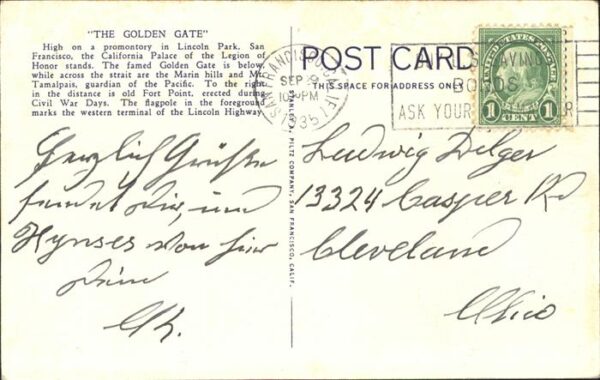 "THE GOLDEN GATE"
High on a promontory in Lincoln Park, San
Francisco, the California Palace of the Legion of
Honor stands. The famed Golden Gate is below,
while across the strait are the Marin hills and Mt.
Tamalpais, guardian of the Pacific. To the right
in the distance is old Fort Point, erected during
Civil War Days. The flagpole in the foreground
marks the western terminal of the Lincoln Highway
POST CARD
THIS SPACE FOR ADDRESS ONLY
SAN FRANCISCO CALIF
SEP
PM
1935
SAVING
BONDS
ASK YOUR
UNITED STATES POSTAGE
1 CENT 1
STANLEY A. PILTZ COMPANY, SAN FRANCISCO, CALIF.
Herzlich Grüße
sendet Dir, und
von hier
Dein
K.
Ludwig Delger
13324 Casper Rd
Cleveland
Ohio